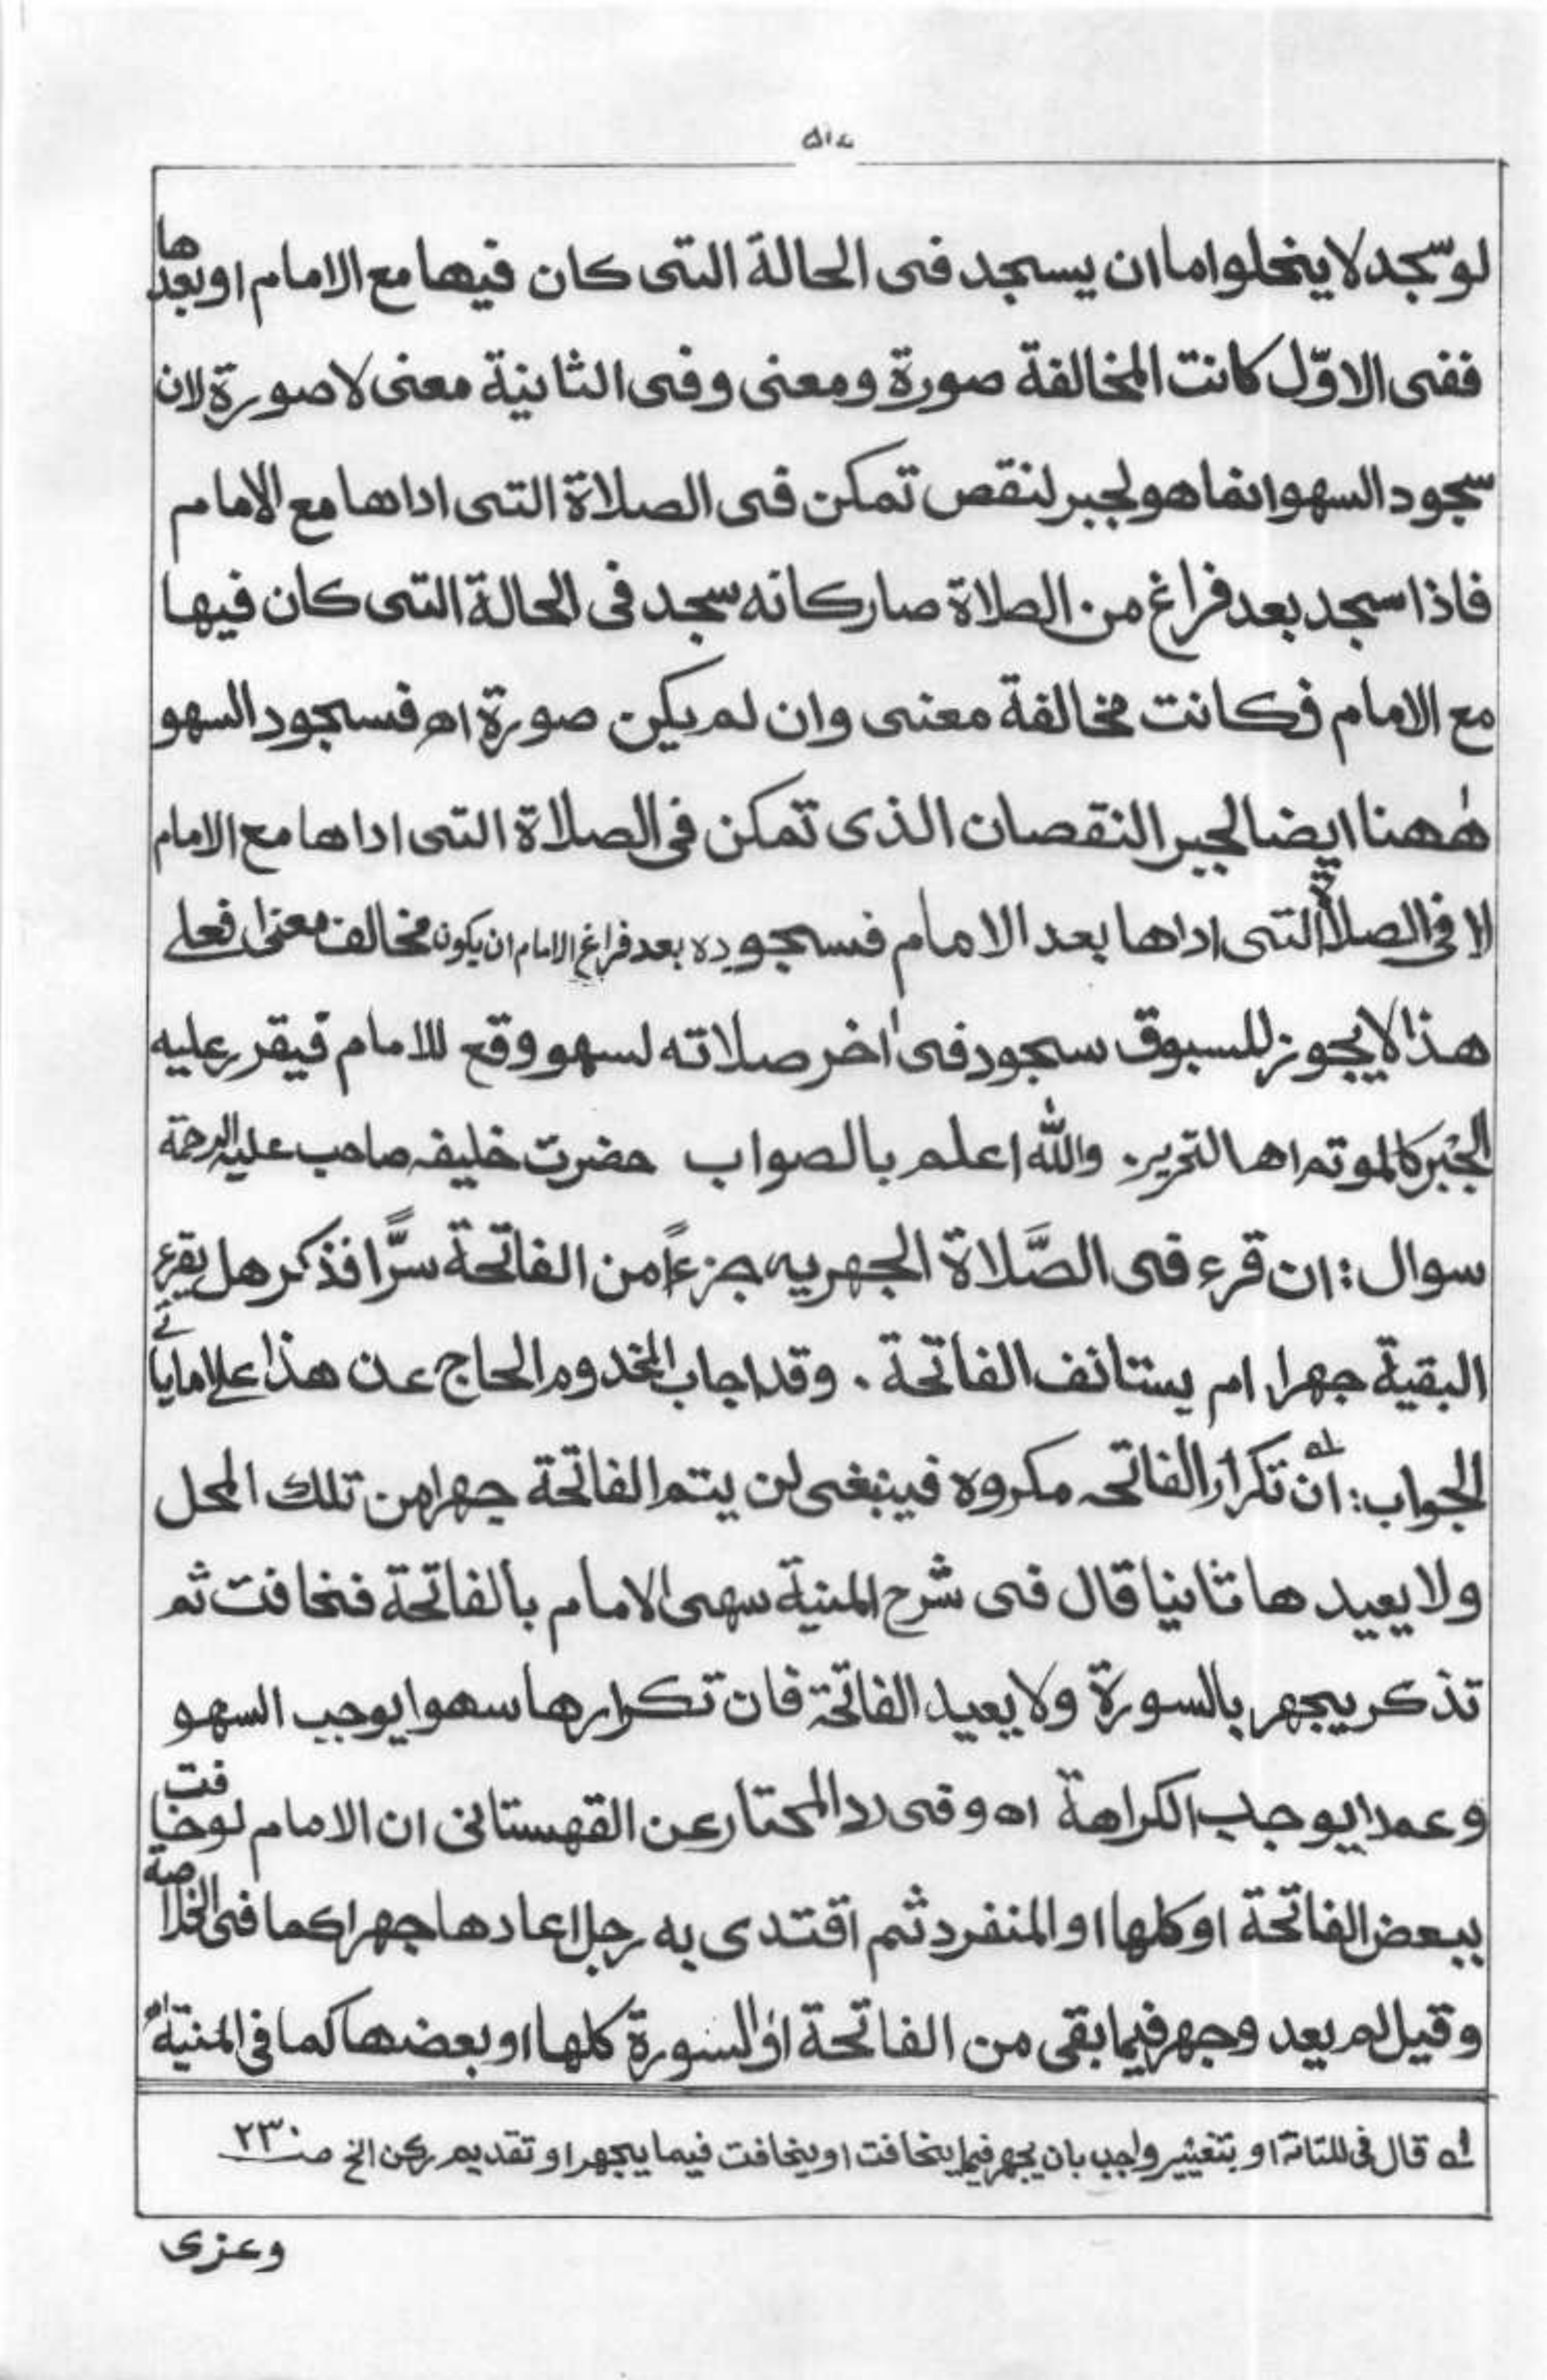 ٥١٤
لو سجد لا يخلوا اما ان يسجد فى الحالة التى كان فيها مع الامام او بعدها
ففى الاوّل كانت المخالفة صورة ومعنى وفى الثانية معنى لا صورة لان
سجود السهو انما هو لجبر لنقص تمكن فى الصلاة التى اداها مع الامام
فاذا سجد بعد فراغ من الصلاة صار كانه سجد فى الحالة التى كان فيها
مع الامام فكانت مخالفة معنى وان لم يكن صورة اھ فسجود السهو
هٰهنا ايضا لجبر النقصان الذى تمكن فى الصلاة التى اداها مع الامام
لا فى الصلاة التى اداها بعد الامام فسجوده بعد فراغ الامام ان يكون مخالف معنى فعلى
هذا لا يجوز للسبوق سجود فى اٰخر صلاته لسهو وقع للامام فيقرر عليه
الجبر كالموتم اھا التحرير. والله اعلم بالصواب حضرت خليفه صاحب عليه الرحمة
سوال: ان قرء فى الصَّلاة الجهريه جزءاً من الفاتحة سرًّا فذكر هل يقرء
البقية جهرا ام يستانف الفاتحة. وقد اجاب المخدوم الحاج عن هذا على ما ياتے
الجواب: ان تكرار الفاتحه مكروه فينبغى لن يتم الفاتحة جهرا من تلك المحل
ولا يعيدها ثانيا قال فى شرح المنية سهى الامام بالفاتحة فخافت ثم
تذكر يجهر بالسورة ولا يعيد الفاتحة فان تكرارها سهوا يوجب السهو
وعمدا يوجب الكراهة اھ وفى رد المحتار عن القهستانى ان الامام لو خافت
ببعض الفاتحة او كلها او المنفرد ثم اقتدى به رجل اعادها جهرا كما فى الخلاصة
وقيل لم يعد وجهر فيما بقى من الفاتحة او السورة كلها او بعضها كما فى المنية اھ
لہ قال فى للتانة او بتغيير واجب بان يجهر فيما يخافت او يخافت فيما يجهر او تقديم ركن الخ صـ ٢٣٠
وعزى